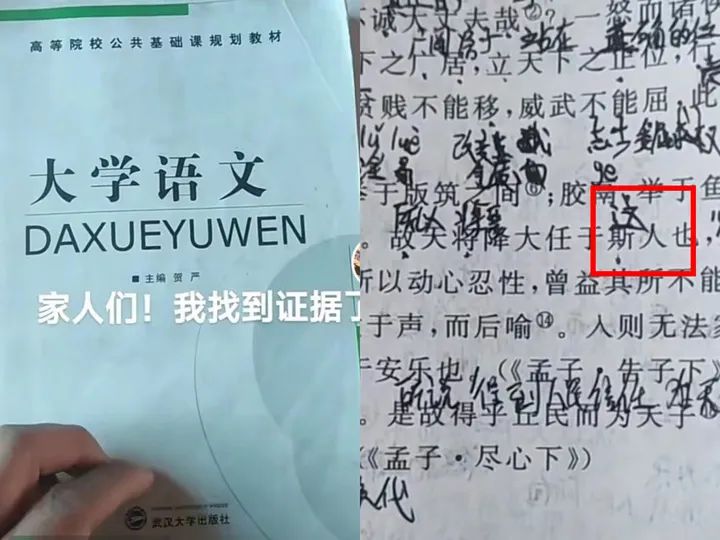 高等院校公共基础课规划教材
大学语文
DAXUEYUWEN
■ 主编 贺 严
家人们！我找到证据了
武汉大学出版社
诚大丈夫哉②？一怒而诸
站在 正确的位
下之广居，立天下之正位，行
贫贱不能移，威武不能屈，此
改变
举于版筑之间⑥；胶鬲 举于鱼
所以 将要 这
。故天将降大任于斯人也，
所以动心忍性，曾益其所不能
于声，而后喻⑭。入则无法家
于安乐也。(《孟子·告子下》)
得到人民信任
。是故得乎丘民而为天子
《孟子·尽心下》)
代